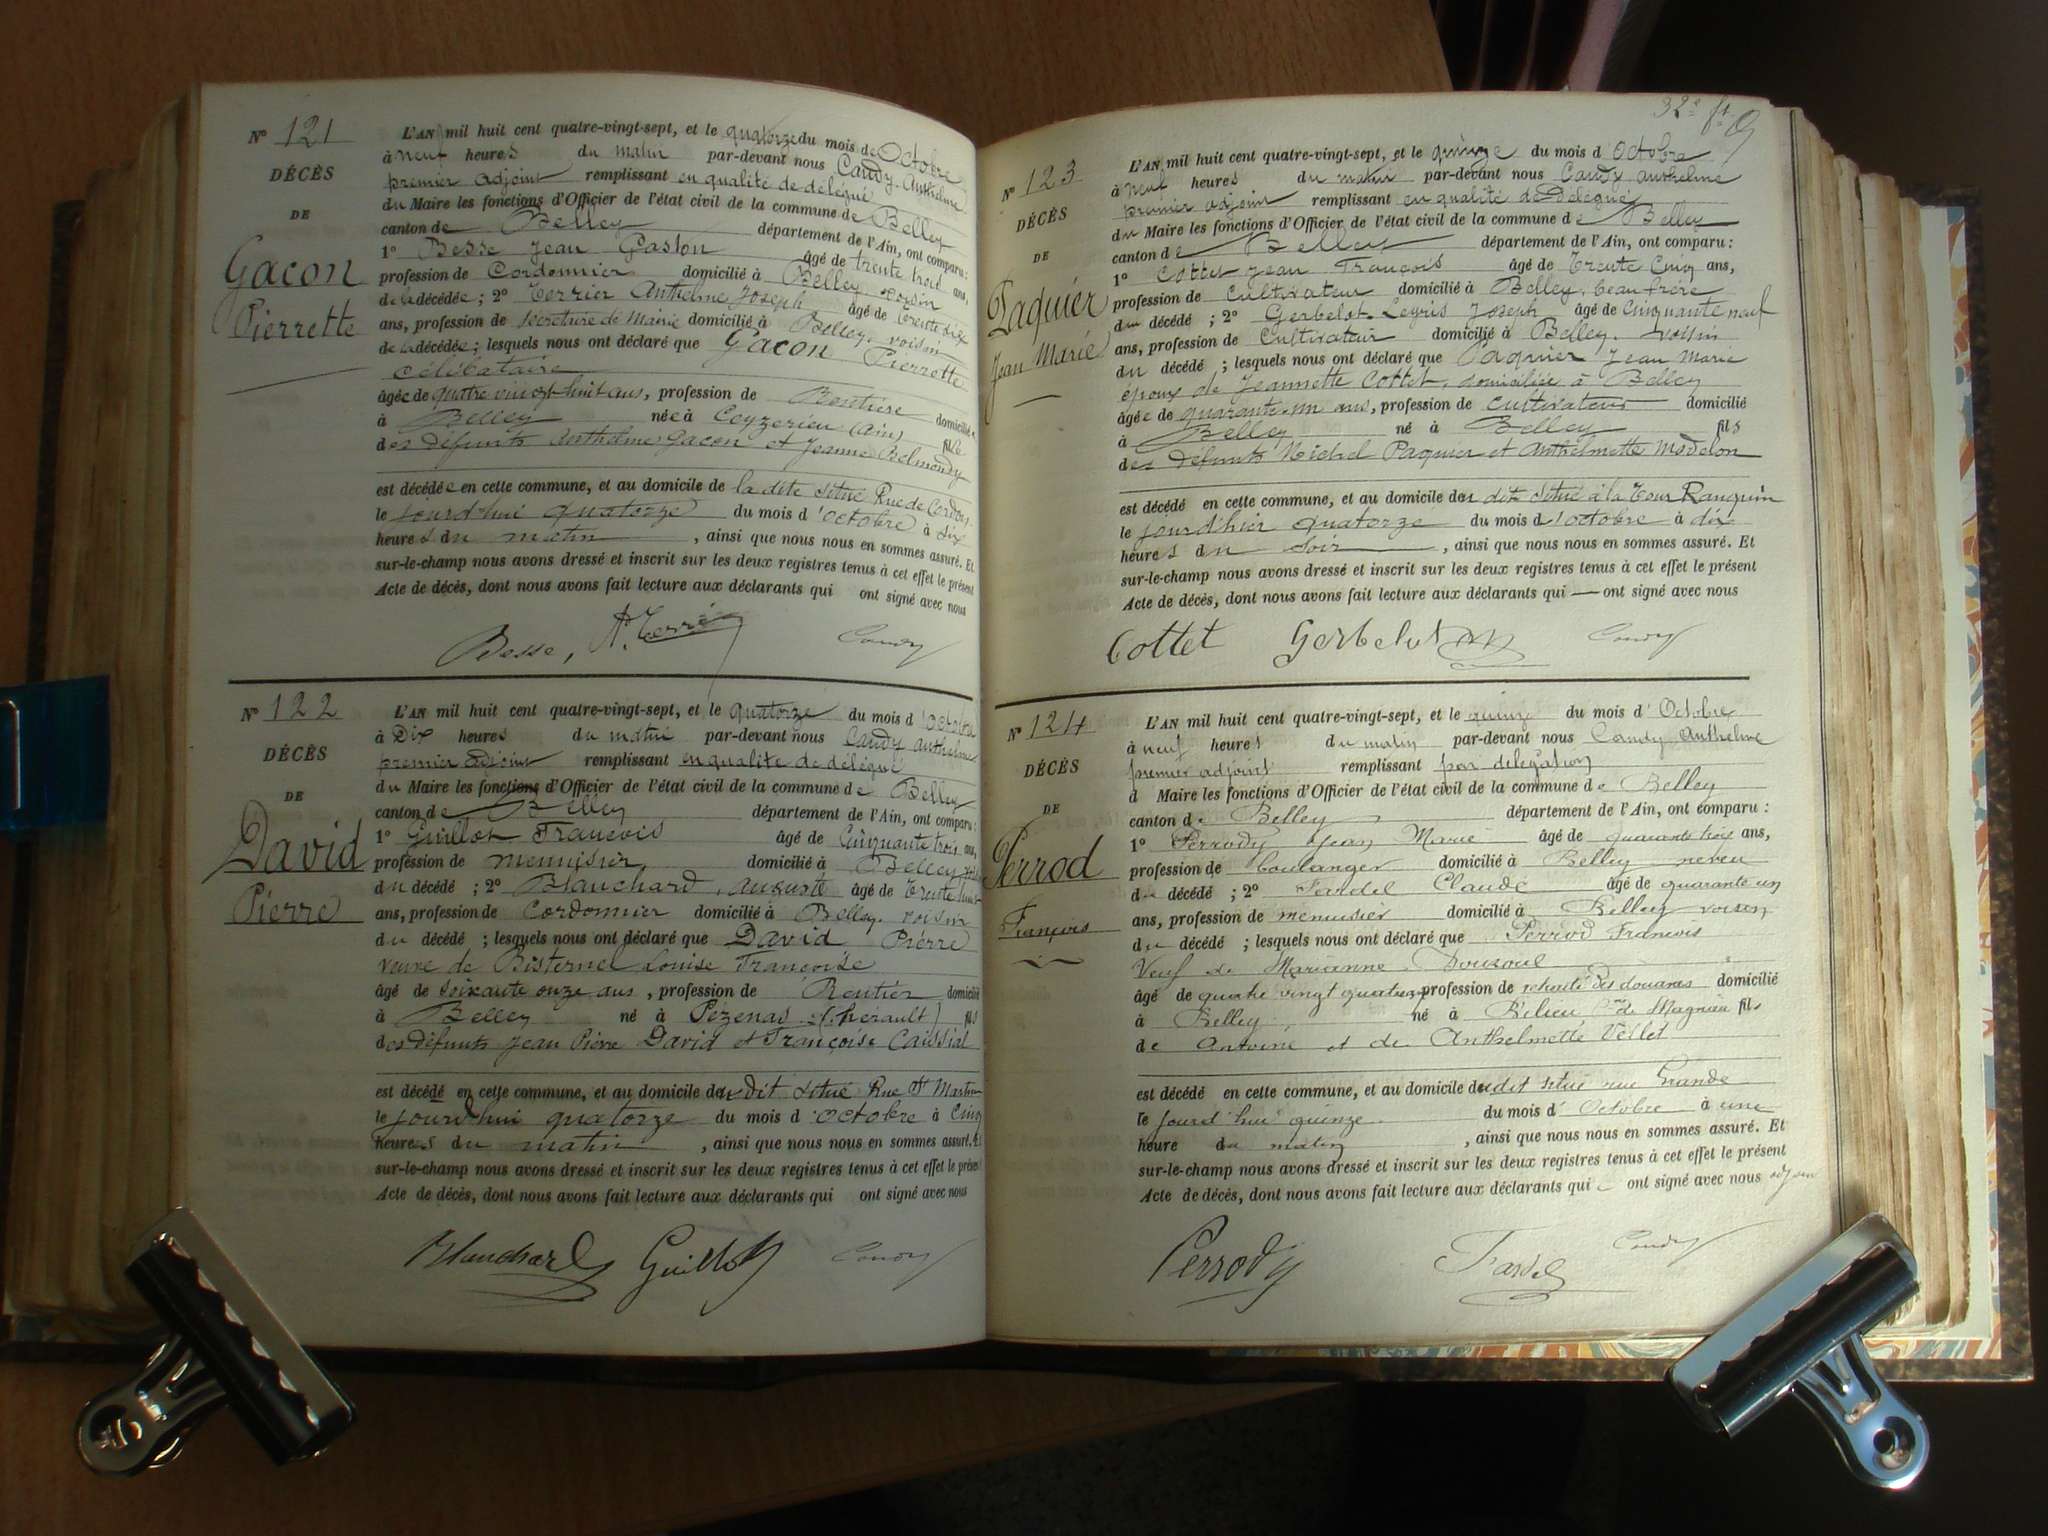 N° 121
DÉCÈS
DE
Gacon
Pierrette
L'AN mil huit cent quatre-vingt-sept, et le quatorze du mois de Octobre
à neuf heures du matin par-devant nous Candy Anthelme
premier adjoint remplissant en qualité de délégué
du Maire les fonctions d'Officier de l'état civil de la commune de Belley
canton de Belley département de l'Ain, ont comparu :
1° Besse Jean Gaston âgé de trente trois ans,
profession de Cordonnier domicilié à Belley voisin
de la décédée ; 2° Terrier Anthelme Joseph âgé de trente six
ans, profession de secrétaire de Mairie domicilié à Belley, voisin
de la décédée ; lesquels nous ont déclaré que Gacon Pierrette
célibataire
âgée de quatre vingt huit ans, profession de Rentière domiciliée
à Belley née à Ceyzerieu (Ain) fille
des défunts Anthelme Gacon et Jeanne Belmondy
est décédée en cette commune, et au domicile de la dite situé Rue de Cordon
le jourd'hui quatorze du mois d'octobre à six
heures du matin , ainsi que nous nous en sommes assuré. Et
sur-le-champ nous avons dressé et inscrit sur les deux registres tenus à cet effet le présent
Acte de décès, dont nous avons fait lecture aux déclarants qui ont signé avec nous
Besse, A. Terrier Candy
N° 122
DÉCÈS
DE
David
Pierre
L'AN mil huit cent quatre-vingt-sept, et le quatorze du mois d'octobre
à Dix heures du matin par-devant nous Candy anthelme
premier adjoint remplissant en qualité de délégué
du Maire les fonctions d'Officier de l'état civil de la commune de Belley
canton de Belley département de l'Ain, ont comparu :
1° Guillot François âgé de Cinquante trois ans,
profession de menuisier domicilié à Belley
du décédé ; 2° Blanchard, auguste âgé de trente huit
ans, profession de Cordonnier domicilié à Belley, voisin
du décédé ; lesquels nous ont déclaré que David Pierre
veuve de Bisternel Louise Françoise
âgé de soixante onze ans , profession de Rentier domicilié
à Belley né à Pézenas (hérault) fils
des défunts Jean Pierre David et Françoise Caissial
est décédé en cette commune, et au domicile du dit situé Rue St Martin
le jourd'hui quatorze du mois d'octobre à Cinq
heures du matin , ainsi que nous nous en sommes assuré. Et
sur-le-champ nous avons dressé et inscrit sur les deux registres tenus à cet effet le présent
Acte de décès, dont nous avons fait lecture aux déclarants qui ont signé avec nous
Blanchard Guillot Candy
32e ft
N° 123
DÉCÈS
DE
Paquier
Jean Marie
L'AN mil huit cent quatre-vingt-sept, et le quinze du mois d Octobre
à neuf heures du matin par-devant nous Candy anthelme
premier adjoint remplissant en qualité de délégué
du Maire les fonctions d'Officier de l'état civil de la commune de Belley
canton de Belley département de l'Ain, ont comparu :
1° Cottet Jean François âgé de trente Cinq ans,
profession de Cultivateur domicilié à Belley, beau frère
du décédé ; 2° Gerbelot-Legris Joseph âgé de Cinquante neuf
ans, profession de Cultivateur domicilié à Belley, voisin
du décédé ; lesquels nous ont déclaré que Paquier Jean Marie
époux de Jeannette Cottet, domiciliée à Belley
âgée de quarante-un ans, profession de cultivateur domicilié
à Belley né à Belley fils
des défunts Michel Paquier et Anthelmette Modelon
est décédé en cette commune, et au domicile du dit situé à la Tour Ranquin
le jourd'hier quatorze du mois d'octobre à dix
heures du soir , ainsi que nous nous en sommes assuré. Et
sur-le-champ nous avons dressé et inscrit sur les deux registres tenus à cet effet le présent
Acte de décès, dont nous avons fait lecture aux déclarants qui — ont signé avec nous
Cottet Gerbelot Candy
N° 124
DÉCÈS
DE
Perrod
François
L'AN mil huit cent quatre-vingt-sept, et le quinze du mois d'Octobre
à neuf heures du matin par-devant nous Candy Anthelme
premier adjoint remplissant par délégation
d Maire les fonctions d'Officier de l'état civil de la commune de Belley
canton de Belley département de l'Ain, ont comparu :
1° Perrody Jean Marie âgé de quarante trois ans,
profession de boulanger domicilié à Belley neveu
du décédé ; 2° Fardel Claude âgé de quarante un
ans, profession de menuisier domicilié à Belley voisin
du décédé ; lesquels nous ont déclaré que Perrod François
Veuf de Marianne
âgé de quatre vingt quatre ans profession de retraité des douanes domicilié
à Belley né à Bilieu de Magnieu fils
de Antoine et de Anthelmette Vellet
est décédé en cette commune, et au domicile du dit situé rue Grande
le jourd'hui quinze du mois d'Octobre à une
heure du matin , ainsi que nous nous en sommes assuré. Et
sur-le-champ nous avons dressé et inscrit sur les deux registres tenus à cet effet le présent
Acte de décès, dont nous avons fait lecture aux déclarants qui ont signé avec nous
Perrody Fardel Candy